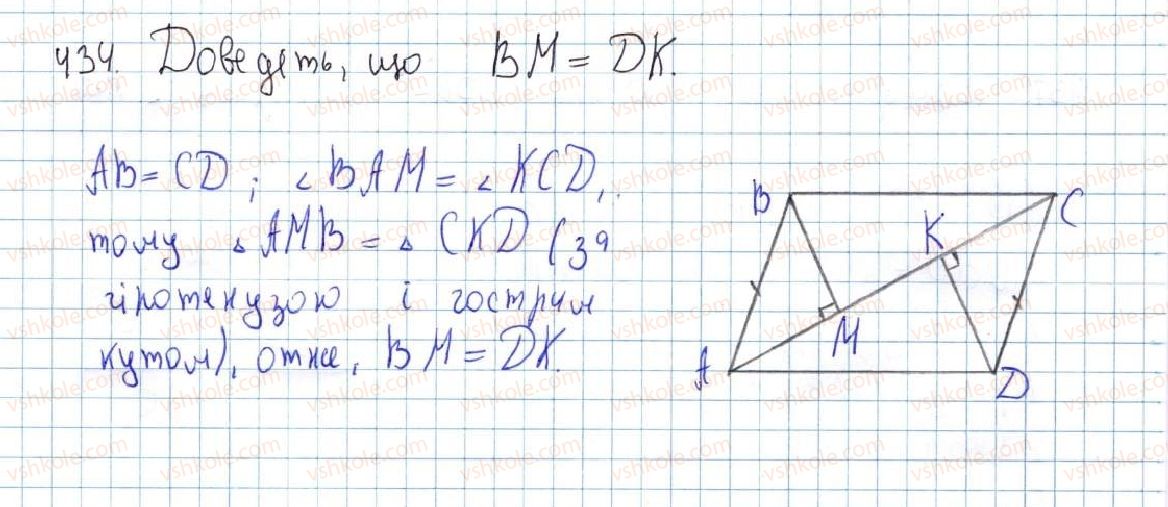 434. Доведеть, що BM = DK.
AB = CD; ∠BAM = ∠KCD,
тому △AMB = △CKD (за
гіпотенузою і гострим
кутом), отже, BM = DK.
B
C
K
M
A
D